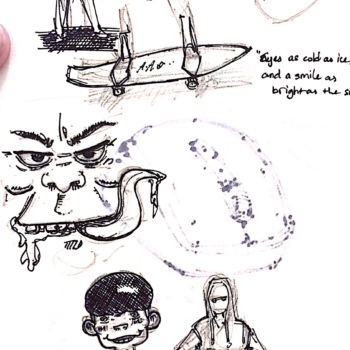 "Eyes as cold as ice,
and a smile as
bright as the